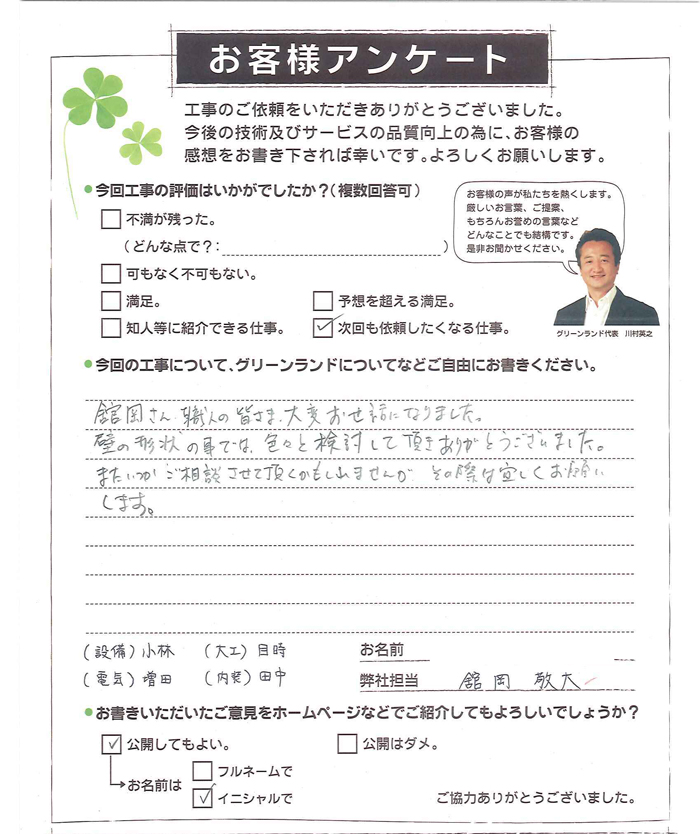 お客様アンケート
工事のご依頼をいただきありがとうございました。
今後の技術及びサービスの品質向上の為に、お客様の
感想をお書き下されば幸いです。よろしくお願いします。
●今回工事の評価はいかがでしたか?(複数回答可)
不満が残った。
(どんな点で?: )
可もなく不可もない。
満足。
予想を超える満足。
知人等に紹介できる仕事。
✓次回も依頼したくなる仕事。
お客様の声が私たちを熱くします。
厳しいお言葉、ご提案、
もちろんお誉めの言葉など
どんなことでも結構です。
是非お聞かせください。
グリーンランド代表 川村英之
●今回の工事について、グリーンランドについてなどご自由にお書きください。
舘岡さん、職人の皆さま、大変お世話になりました。
壁の形状の事では、色々と検討して頂きありがとうございました。
またいつかご相談させて頂くかもしれませんが その際は宜しくお願い
します。
(設備)小林 (大工)目時
(電気)増田 (内装)田中
お名前
弊社担当 舘岡 敬太
●お書きいただいたご意見をホームページなどでご紹介してもよろしいでしょうか?
✓公開してもよい。
公開はダメ。
→お名前は
フルネームで
✓イニシャルで
ご協力ありがとうございました。